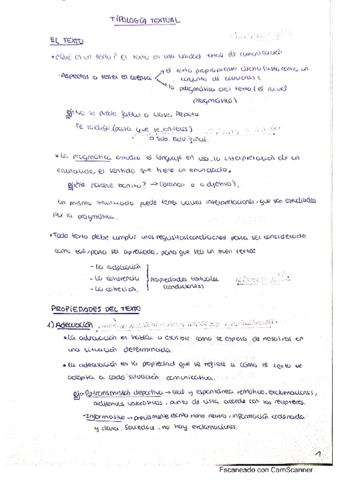 TIPOLOGÍA TEXTUAL
EL TEXTO
¿Qué es un texto? El texto es una unidad total de comunicación
Aspectos a tener en cuenta
el texto propiamente dicho (visto como un
conjunto de oraciones)
la pragmática del texto (el nivel
pragmático)
Ej: No se puede
Te lo digo (para que te enteres)
O. sub. adv. final
La pragmática estudia el lenguaje en uso, la interpretación de un
enunciado, el sentido que tiene un enunciado.
Ej: ¡Me parece bonito! →
Un mismo enunciado puede tener varias interpretaciones, que son estudiadas
por la pragmática.
Todo texto debe cumplir unos requisitos/condiciones para ser considerado
como tal, para ser apreciado, para que sea un buen texto:
- La adecuación
- La coherencia
- La cohesión
propiedades textuales
(condiciones)
PROPIEDADES DEL TEXTO
1) ADECUACIÓN
La adecuación es hablar o escribir como se espera de nosotros en
una situación determinada.
La adecuación es la propiedad que se refiere a cómo el texto se
adapta a cada situación comunicativa.
Ej: - Retransmisión deportiva → oral y espontánea, emotivo, exclamaciones,
adjetivos valorativos, punto de vista acorde con los receptores.
- Informativo → previamente escrito, tono neutro, información ordenada
y clara. Seriedad, no hay exclamaciones.
1
Escaneado con CamScanner